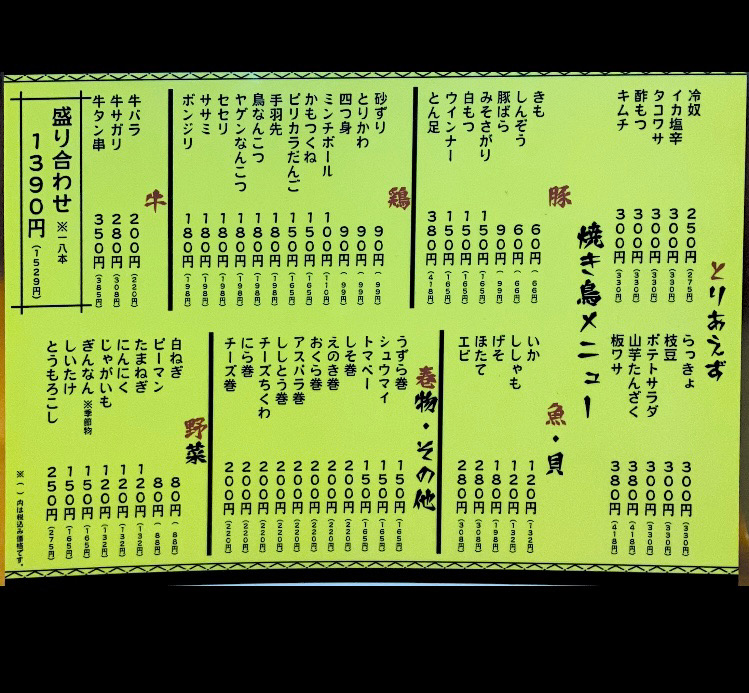 とりあえず
冷奴 250円(275円)
イカ塩辛 300円(330円)
タコワサ 300円(330円)
酢もつ 300円(330円)
キムチ 300円(330円)
らっきょ 300円(330円)
枝豆 300円(330円)
ポテトサラダ 300円(330円)
山芋たんざく 380円(418円)
板ワサ 380円(418円)
焼き鳥メニュー
豚
きも 60円(66円)
しんぞう 60円(66円)
豚ばら 90円(99円)
みそさがり 150円(165円)
白もつ 150円(165円)
ウインナー 150円(165円)
とん足 380円(418円)
魚・貝
いか 120円(132円)
ししゃも 120円(132円)
げそ 180円(198円)
ほたて 280円(308円)
エビ 280円(308円)
鶏
砂ずり 90円(99円)
とりかわ 90円(99円)
四つ身 90円(99円)
ミンチボール 100円(110円)
かもつくね 150円(165円)
ピリカラだんご 150円(165円)
手羽先 180円(198円)
鳥なんこつ 180円(198円)
ヤゲンなんこつ 180円(198円)
セセリ 180円(198円)
ササミ 180円(198円)
ボンジリ 180円(198円)
巻物・その他
うずら巻 150円(165円)
シュウマイ 150円(165円)
トマベー 150円(165円)
しそ巻 200円(220円)
えのき巻 200円(220円)
おくら巻 200円(220円)
アスパラ巻 200円(220円)
ししとう巻 200円(220円)
チーズちくわ 200円(220円)
にら巻 200円(220円)
チーズ巻 200円(220円)
牛
牛バラ 200円(220円)
牛サガリ 280円(308円)
牛タン串 350円(385円)
盛り合わせ ※一八本
1390円(1529円)
野菜
白ねぎ 80円(88円)
ピーマン 80円(88円)
たまねぎ 120円(132円)
にんにく 120円(132円)
じゃがいも 120円(132円)
ぎんなん※季節物 150円(165円)
しいたけ 150円(165円)
とうもろこし 250円(275円)
※( )内は税込み価格です。